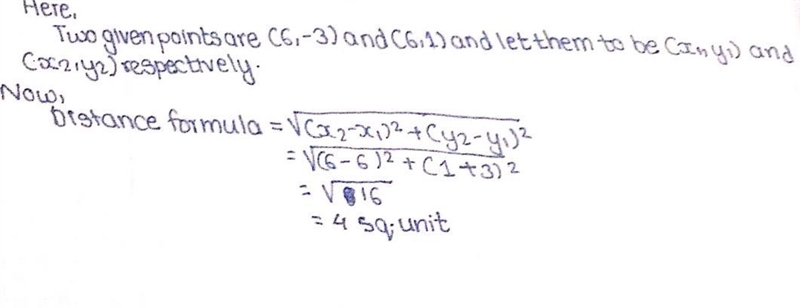 Here,
Two given points are (6,-3) and (6,1) and let them to be (x₁, y₁) and
(x₂, y₂) respectively.
Now,
Distance formula = √(x₂-x₁)² + (y₂-y₁)²
= √(6-6)² + (1+3)²
= √16
= 4 sq. unit